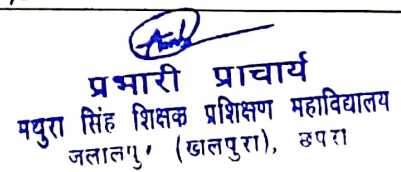 प्रभारी प्राचार्य
मथुरा सिंह शिक्षक प्रशिक्षण महाविद्यालय
(खालपुरा), छपरा